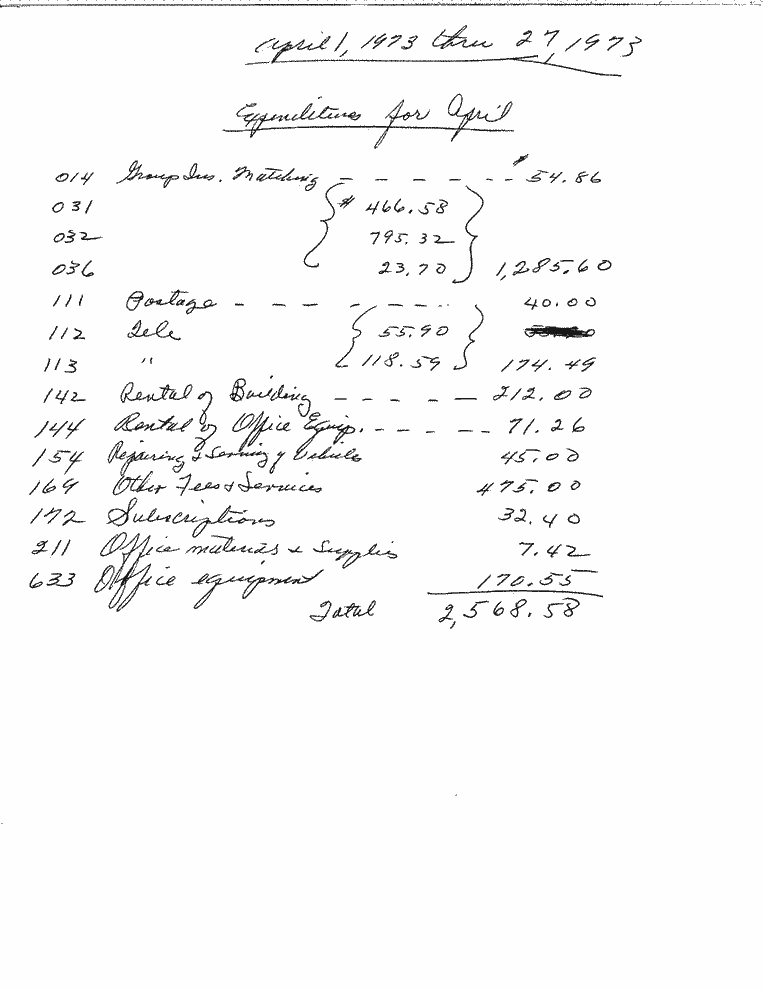 April 1, 1973 thru 27, 1973
Expenditures for April
014 Group Ins. Matching - - - - - - - $ 54.86
031 $ 466.58
032 795.32
036 23.70 1,285.60
111 Postage - - - - - - - 40.00
112 Tele 55.90
113 " 118.59 174.49
142 Rental of Building - - - - - 212.00
144 Rental of Office Equip. - - - - - 71.26
154 Repairing & Serving of Vehicle 45.00
169 Other Fees & Services 475.00
172 Subscriptions 32.40
211 Office materials & Supplies 7.42
633 Office equipment 170.55
Total 2,568.58